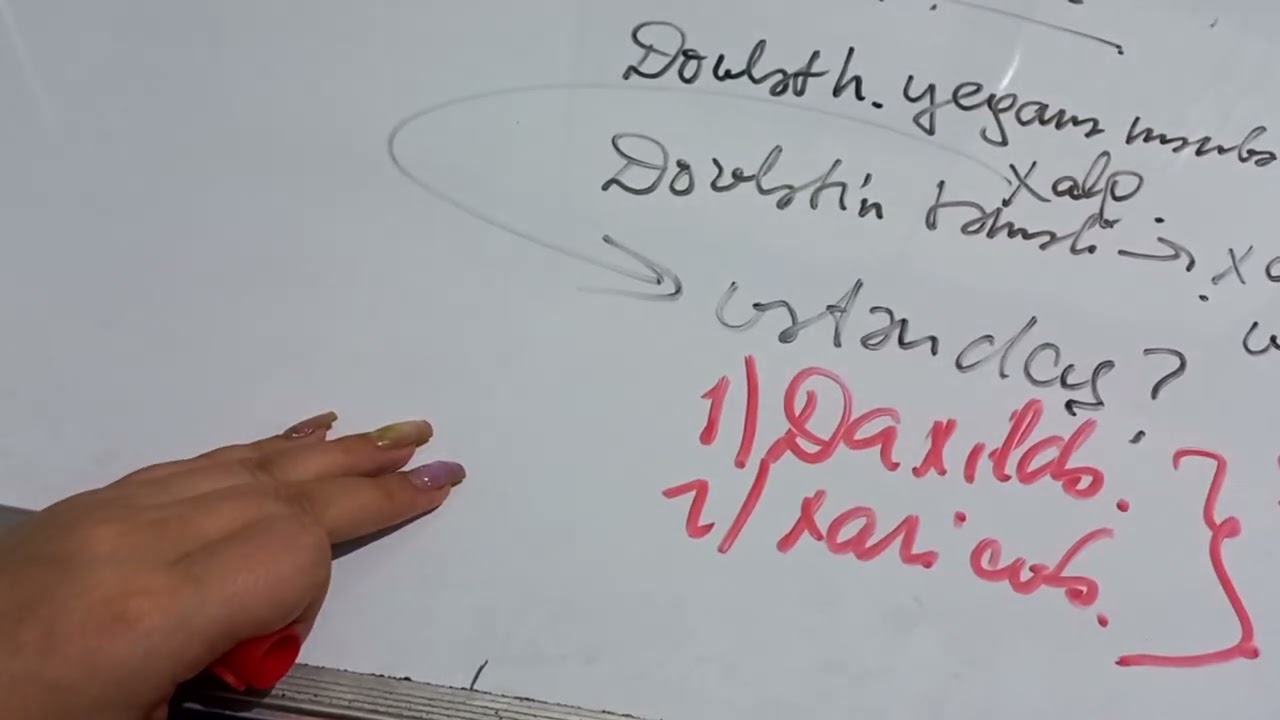 Dövlət h. yeganə mənbə
Xalq.
Dövlətin təməli → X
vətəndaş?
1) Daxildə.
2) xaricdə.